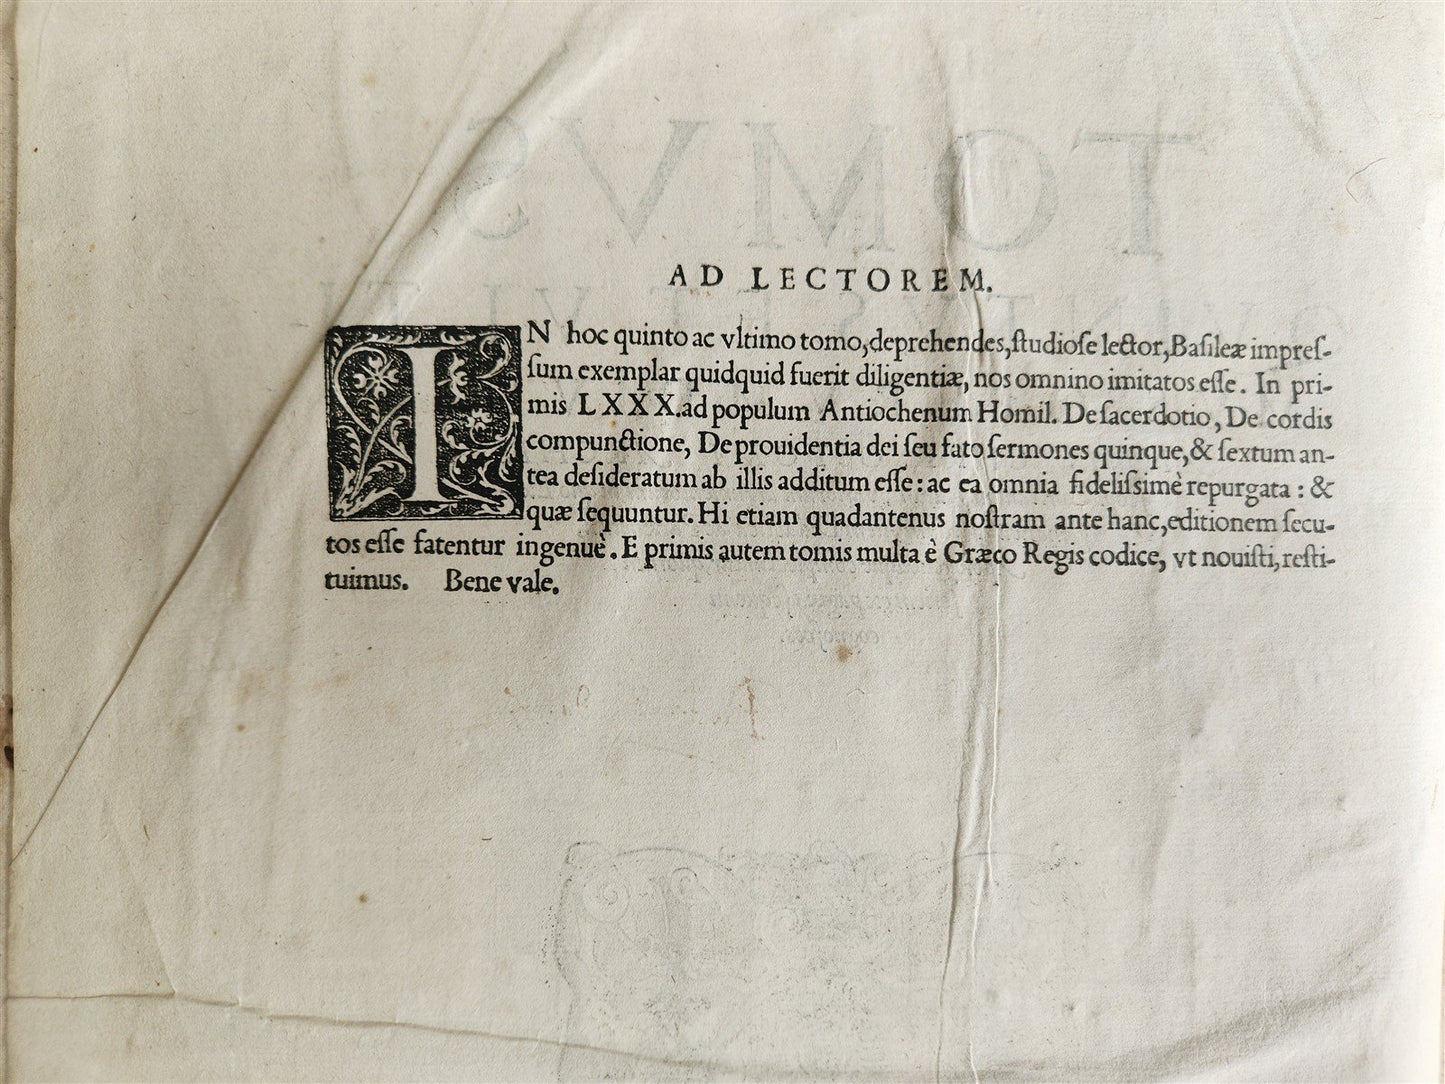 AD LECTOREM.
IN hoc quinto ac vltimo tomo, deprehendes, ſtudioſe lector, Baſileæ impreſ-
ſum exemplar quidquid fuerit diligentiæ, nos omnino imitatos eſſe. In pri-
mis LXXX. ad populum Antiochenum Homil. De ſacerdotio, De cordis
compunctione, De prouidentia dei ſeu fato ſermones quinque, & ſextum an-
tea deſideratum ab illis additum eſſe: ac ea omnia fideliſsimè repurgata: &
quæ ſequuntur. Hi etiam quadantenus noſtram ante hanc, editionem ſecu-
tos eſſe fatentur ingenuè. E primis autem tomis multa è Græco Regis codice, vt nouiſti, reſti-
tuimus. Bene vale.
TOMVS